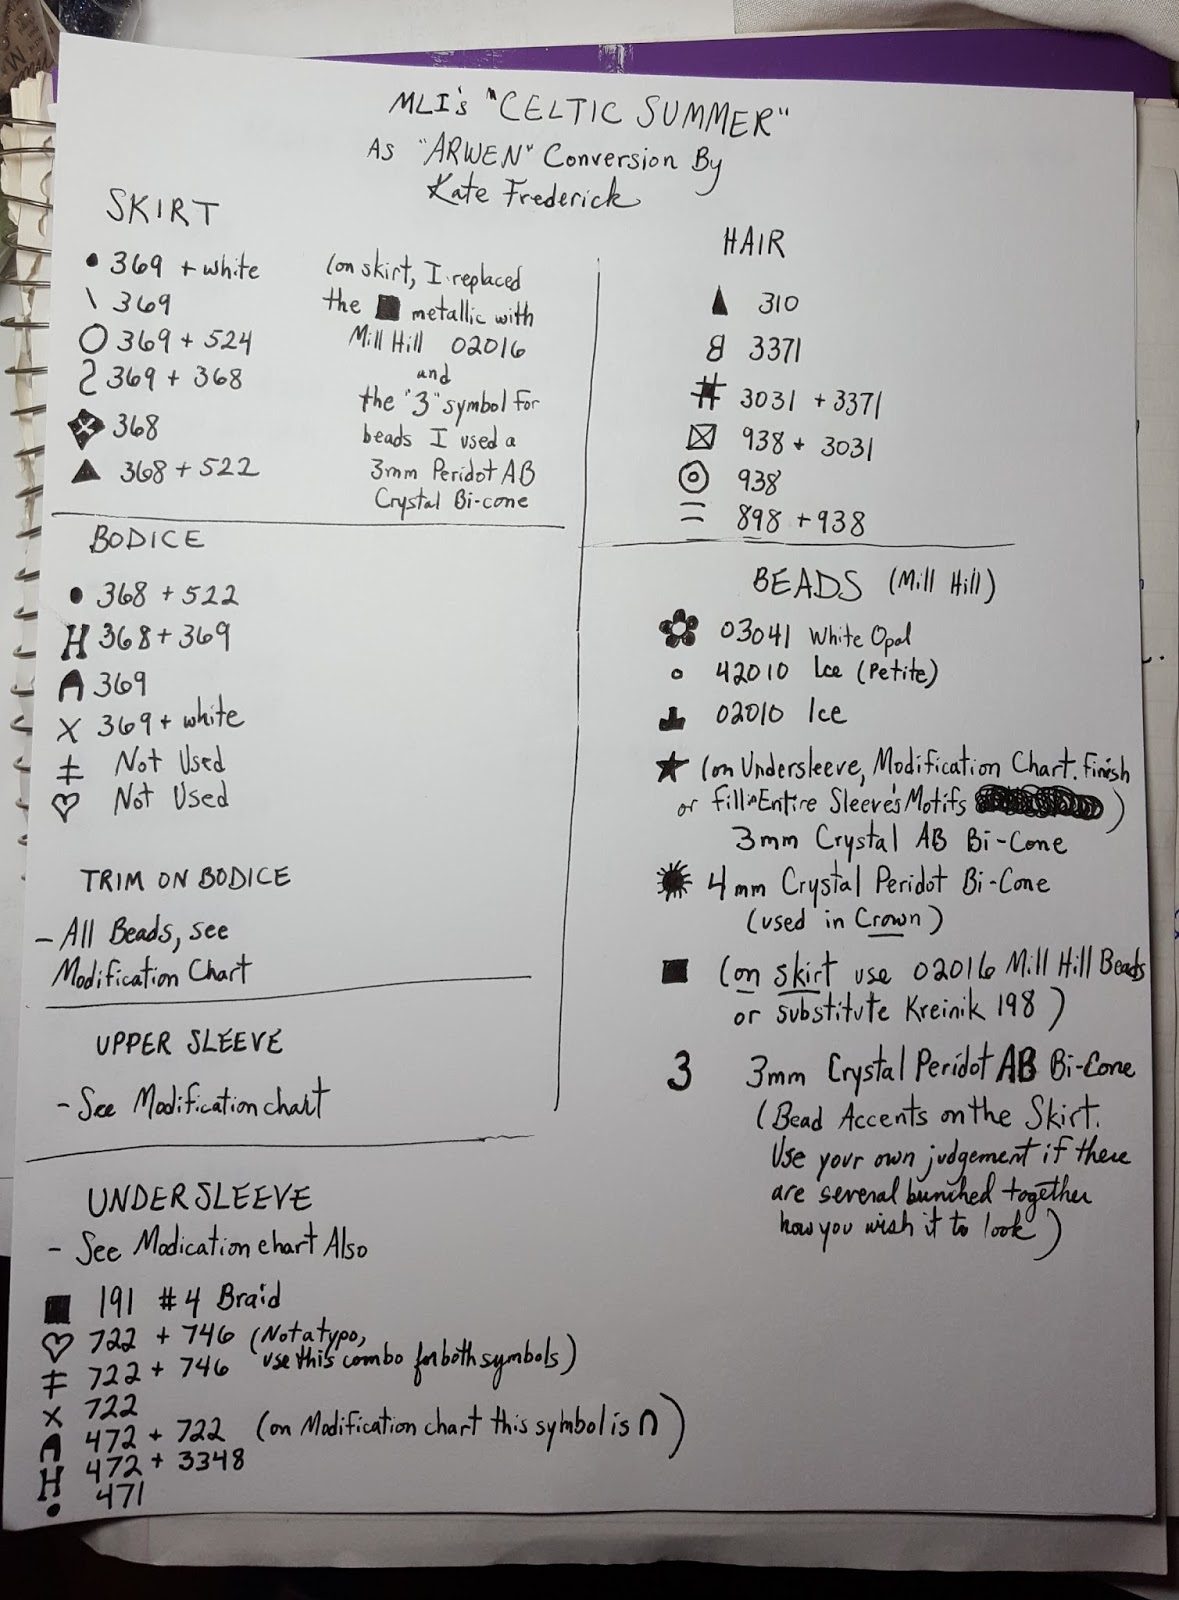 MLI's "CELTIC SUMMER"
As "ARWEN" Conversion By
Kate Frederick
SKIRT
• 369 + white
\ 369
O 369 + 524
2 369 + 368
368
▲ 368 + 522
(on skirt, I replaced
the ■ metallic with
Mill Hill 02016
and
the "3" symbol for
beads I used a
3mm Peridot AB
Crystal Bi-cone
BODICE
• 368 + 522
H 368 + 369
∩ 369
X 369 + white
‡ Not Used
♡ Not Used
TRIM ON BODICE
- All Beads, see
Modification Chart
UPPER SLEEVE
- See Modification chart
UNDERSLEEVE
- See Modication chart Also
■ 191 #4 Braid
♡ 722 + 746 (Not a typo,
use this combo for both symbols)
‡ 722 + 746
X 722
∩ 472 + 722 (on Modification chart this symbol is ∩)
H 472 + 3348
• 471
HAIR
▲ 310
8 3371
# 3031 + 3371
⊠ 938 + 3031
◎ 938
= 898 + 938
BEADS (Mill Hill)
03041 White Opal
○ 42010 Ice (Petite)
02010 Ice
★ (on Undersleeve, Modification Chart. Finish
or fill in Entire Sleeve's Motifs )
3mm Crystal AB Bi-Cone
4mm Crystal Peridot Bi-Cone
(used in Crown)
■ (on skirt use 02016 Mill Hill Beads
or substitute Kreinik 198)
3 3mm Crystal Peridot AB Bi-Cone
(Bead Accents on the Skirt.
Use your own judgement if there
are several bunched together
how you wish it to look)